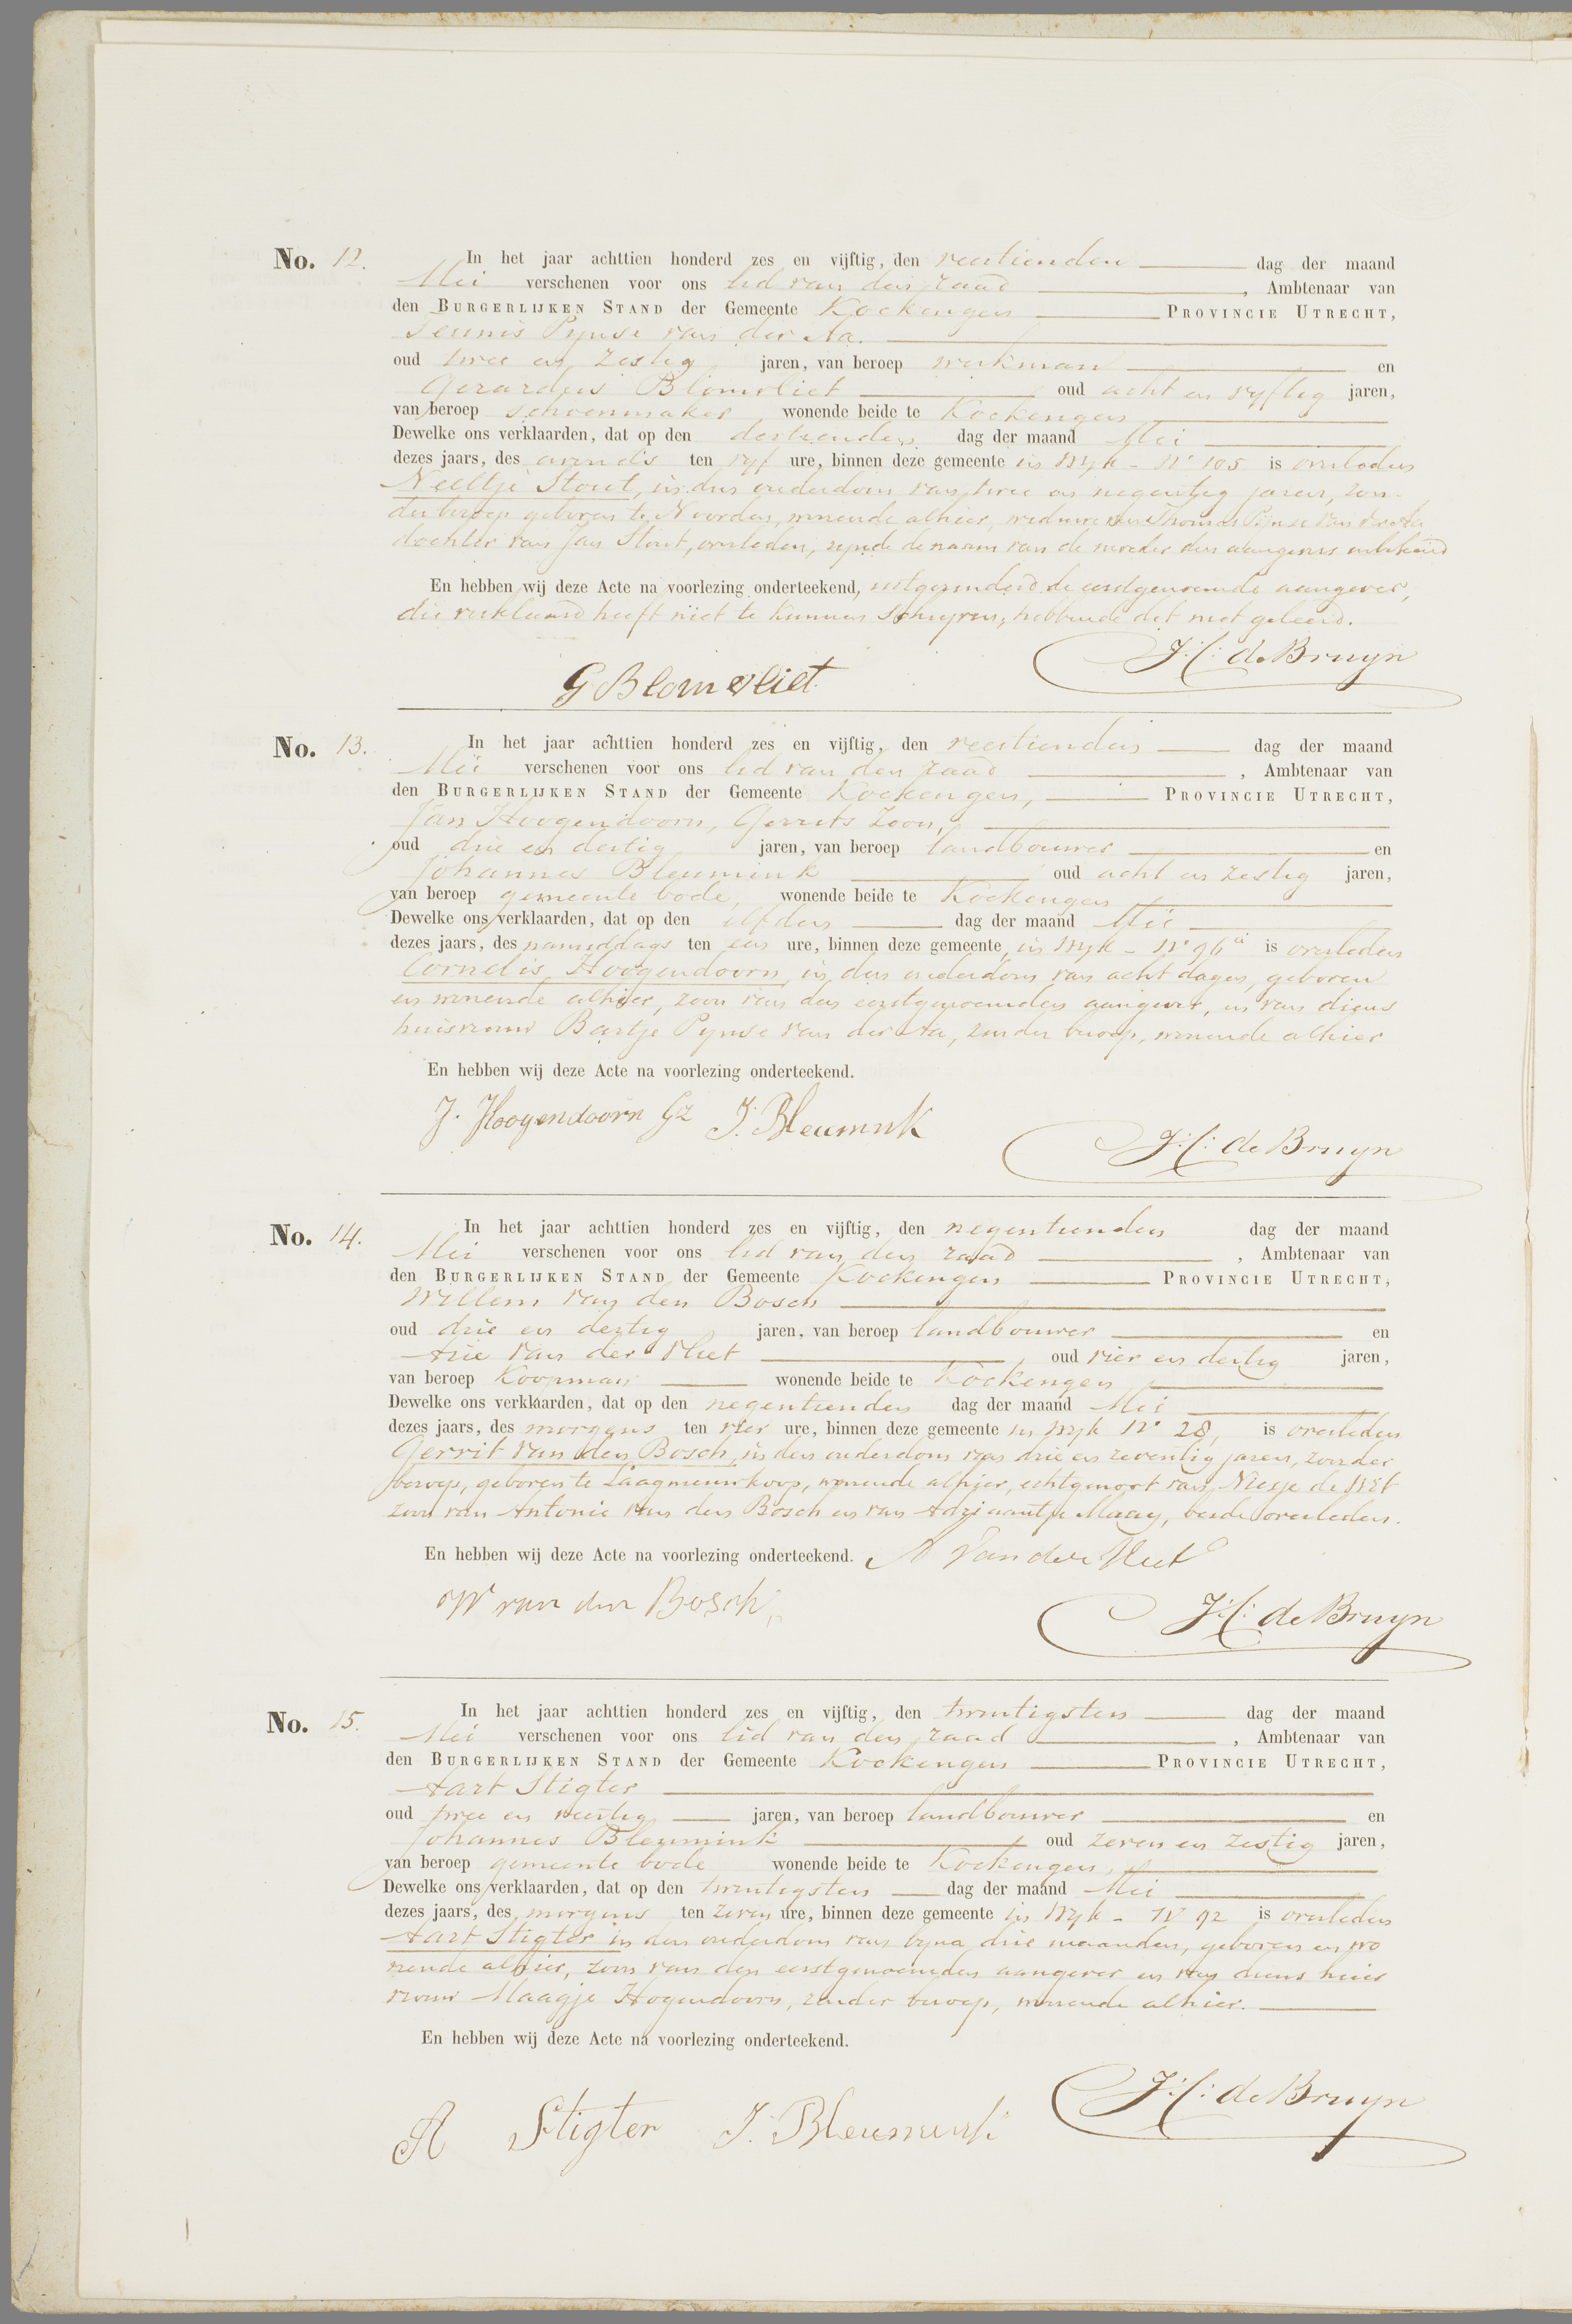 No. 12. In het jaar achttien honderd zes en vijftig, den veertienden dag der maand
Mei verschenen voor ons lid van den raad, Ambtenaar van
den Burgerlijken Stand der Gemeente Kockengen Provincie Utrecht,
Teunis Pynse van der Aa.
oud twee en zestig jaren, van beroep werkman en
Gerardus Blomvliet oud acht en vyftig jaren,
van beroep schoenmaker, wonende beide te Kockengen
Dewelke ons verklaarden, dat op den dertienden dag der maand Mei
dezes jaars, des avonds ten vyf ure, binnen deze gemeente in Wyk - No 105 is overleden
Neeltje Stout, in den ouderdom van twee en negentig jaren, zon-
der beroep geboren te Noorden, wonende alhier, weduwe van Thomas Pijnse van der Aa
dochter van Jan Stout, overleden, zynde de naam van de moeder den aangevers onbekend
En hebben wij deze Acte na voorlezing onderteekend, uitgezonderd de eerstgenoemde aangever,
die verklaard heeft niet te kunnen schryven, hebbende dit niet geleerd.
J: C: de Bruyn
G Blomvliet
No. 13. In het jaar achttien honderd zes en vijftig, den veertienden dag der maand
Mei verschenen voor ons lid van den raad, Ambtenaar van
den Burgerlijken Stand der Gemeente Kockengen, Provincie Utrecht,
Jan Hoogendoorn, Gerrits Zoon,
oud drie en dertig jaren, van beroep landbouwer en
Johannes Bleumink oud acht en zestig jaren,
van beroep gemeente bode, wonende beide te Kockengen
Dewelke ons verklaarden, dat op den elfden dag der maand Mei
dezes jaars, des namiddags ten een ure, binnen deze gemeente, in Wyk - No 96a is overleden
Cornelis Hoogendoorn, in den ouderdom van acht dagen, geboren
en wonende alhier, zoon van den eerstgenoemden aangever, en van diens
huisvrouw Bartje Pynse van der Aa, zonder beroep, wonende alhier
En hebben wij deze Acte na voorlezing onderteekend.
J. Hoogendoorn Gz J. Bleumink
J: C: de Bruyn
No. 14. In het jaar achttien honderd zes en vijftig, den negentienden dag der maand
Mei verschenen voor ons lid van den raad, Ambtenaar van
den Burgerlijken Stand der Gemeente Kockengen Provincie Utrecht,
Willem van den Bosch
oud drie en dertig jaren, van beroep landbouwer en
Arie van der Vliet oud vier en dertig jaren,
van beroep Koopman wonende beide te Kockengen
Dewelke ons verklaarden, dat op den negentienden dag der maand Mei
dezes jaars, des morgens ten vier ure, binnen deze gemeente in Wyk No 28, is overleden
Gerrit van den Bosch, in den ouderdom van drie en zeventig jaren, zonder
beroep, geboren te Laagnieuwkoop, wonende alhier, echtgenoot van Niesje de Wit
zoon van Antonie van den Bosch en van Adriaantje Maay, beide overleden.
En hebben wij deze Acte na voorlezing onderteekend. A Van der Vliet
W van den Bosch
J: C: de Bruyn
No. 15. In het jaar achttien honderd zes en vijftig, den twintigsten dag der maand
Mei verschenen voor ons lid van den raad, Ambtenaar van
den Burgerlijken Stand der Gemeente Kockengen Provincie Utrecht,
Aart Stigter
oud twee en veertig jaren, van beroep landbouwer en
Johannes Bleumink oud zeven en zestig jaren,
van beroep gemeente bode wonende beide te Kockengen,
Dewelke ons verklaarden, dat op den twintigsten dag der maand Mei
dezes jaars, des morgens ten zeven ure, binnen deze gemeente in Wyk - No 92 is overleden
Aart Stigter in den ouderdom van byna drie maanden, geboren en wo
nende alhier, zoon van den eerstgenoemden aangever en van diens huis
vrouw Maagje Hogendoorn, zonder beroep, wonende alhier.
En hebben wij deze Acte na voorlezing onderteekend.
J: C: de Bruyn
A Stigter J. Bleumink